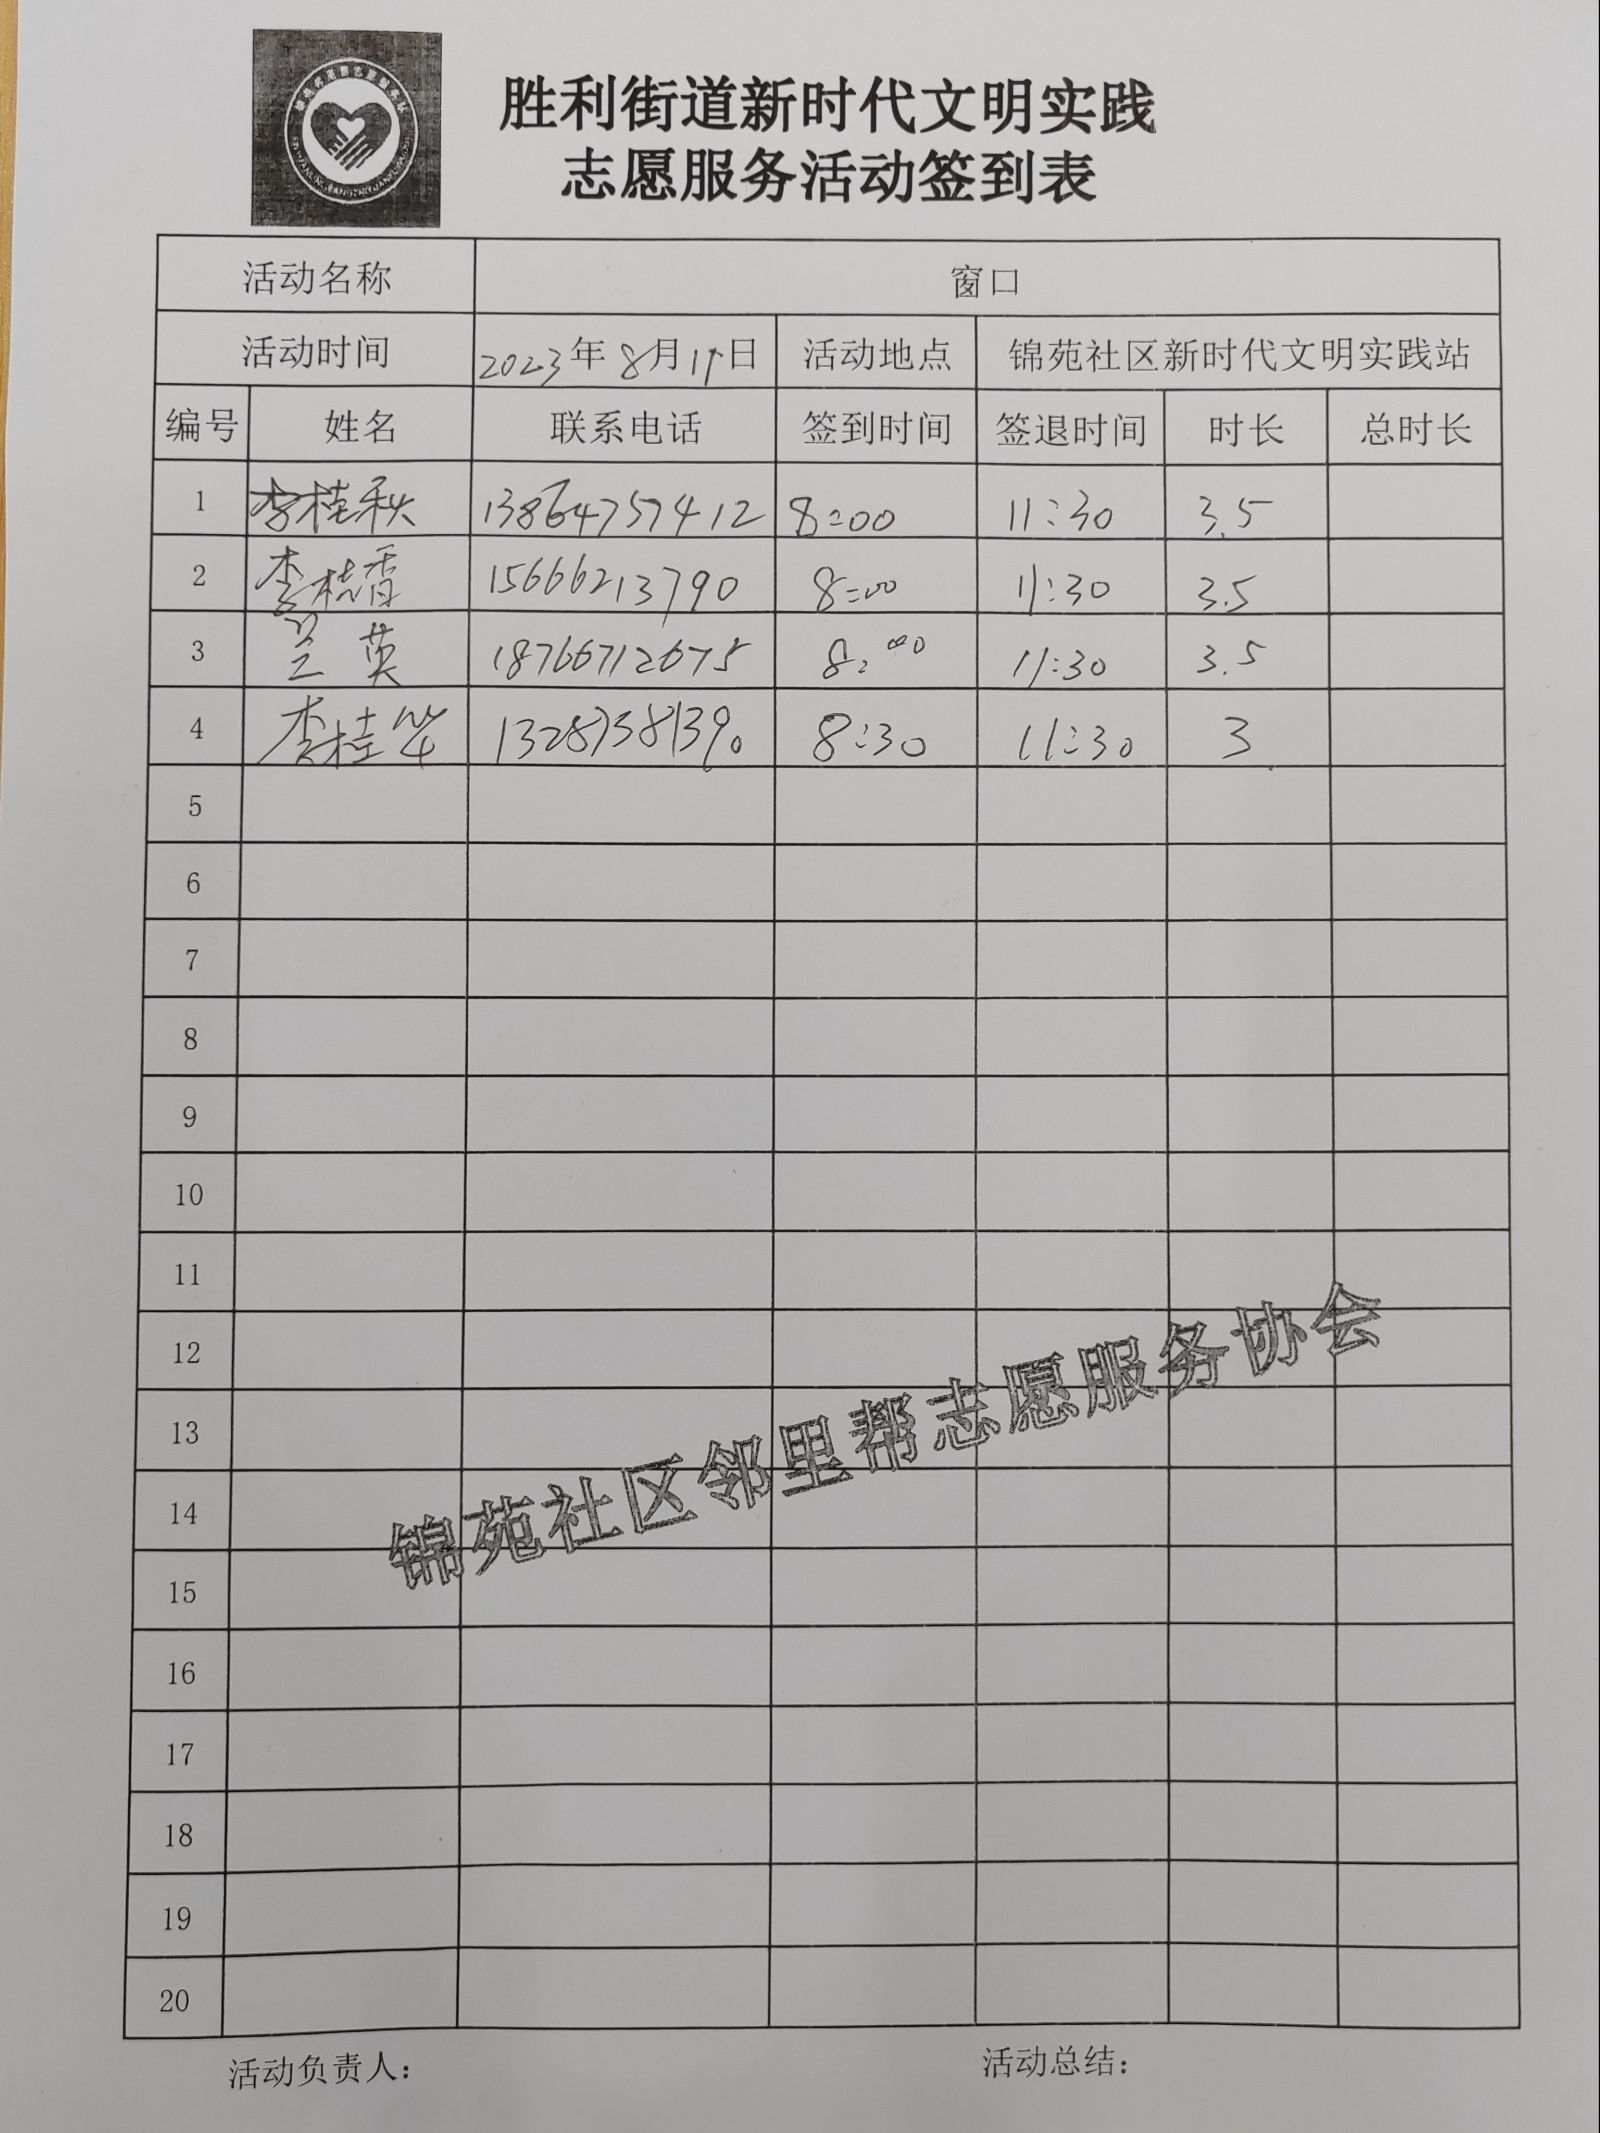 胜利街道新时代文明实践
志愿服务活动签到表
活动名称 窗口
活动时间 2023年8月17日 活动地点 锦苑社区新时代文明实践站
编号 姓名 联系电话 签到时间 签退时间 时长 总时长
1 李桂秋 13864757412 8:00 11:30 3.5
2 李桂香 15666213790 8:00 11:30 3.5
3 兰英 18766712675 8:00 11:30 3.5
4 李桂华 13287381390 8:30 11:30 3
5
6
7
8
9
10
11
12
13
14
15
16
17
18
19
20
锦苑社区邻里帮志愿服务协会
活动负责人： 活动总结：